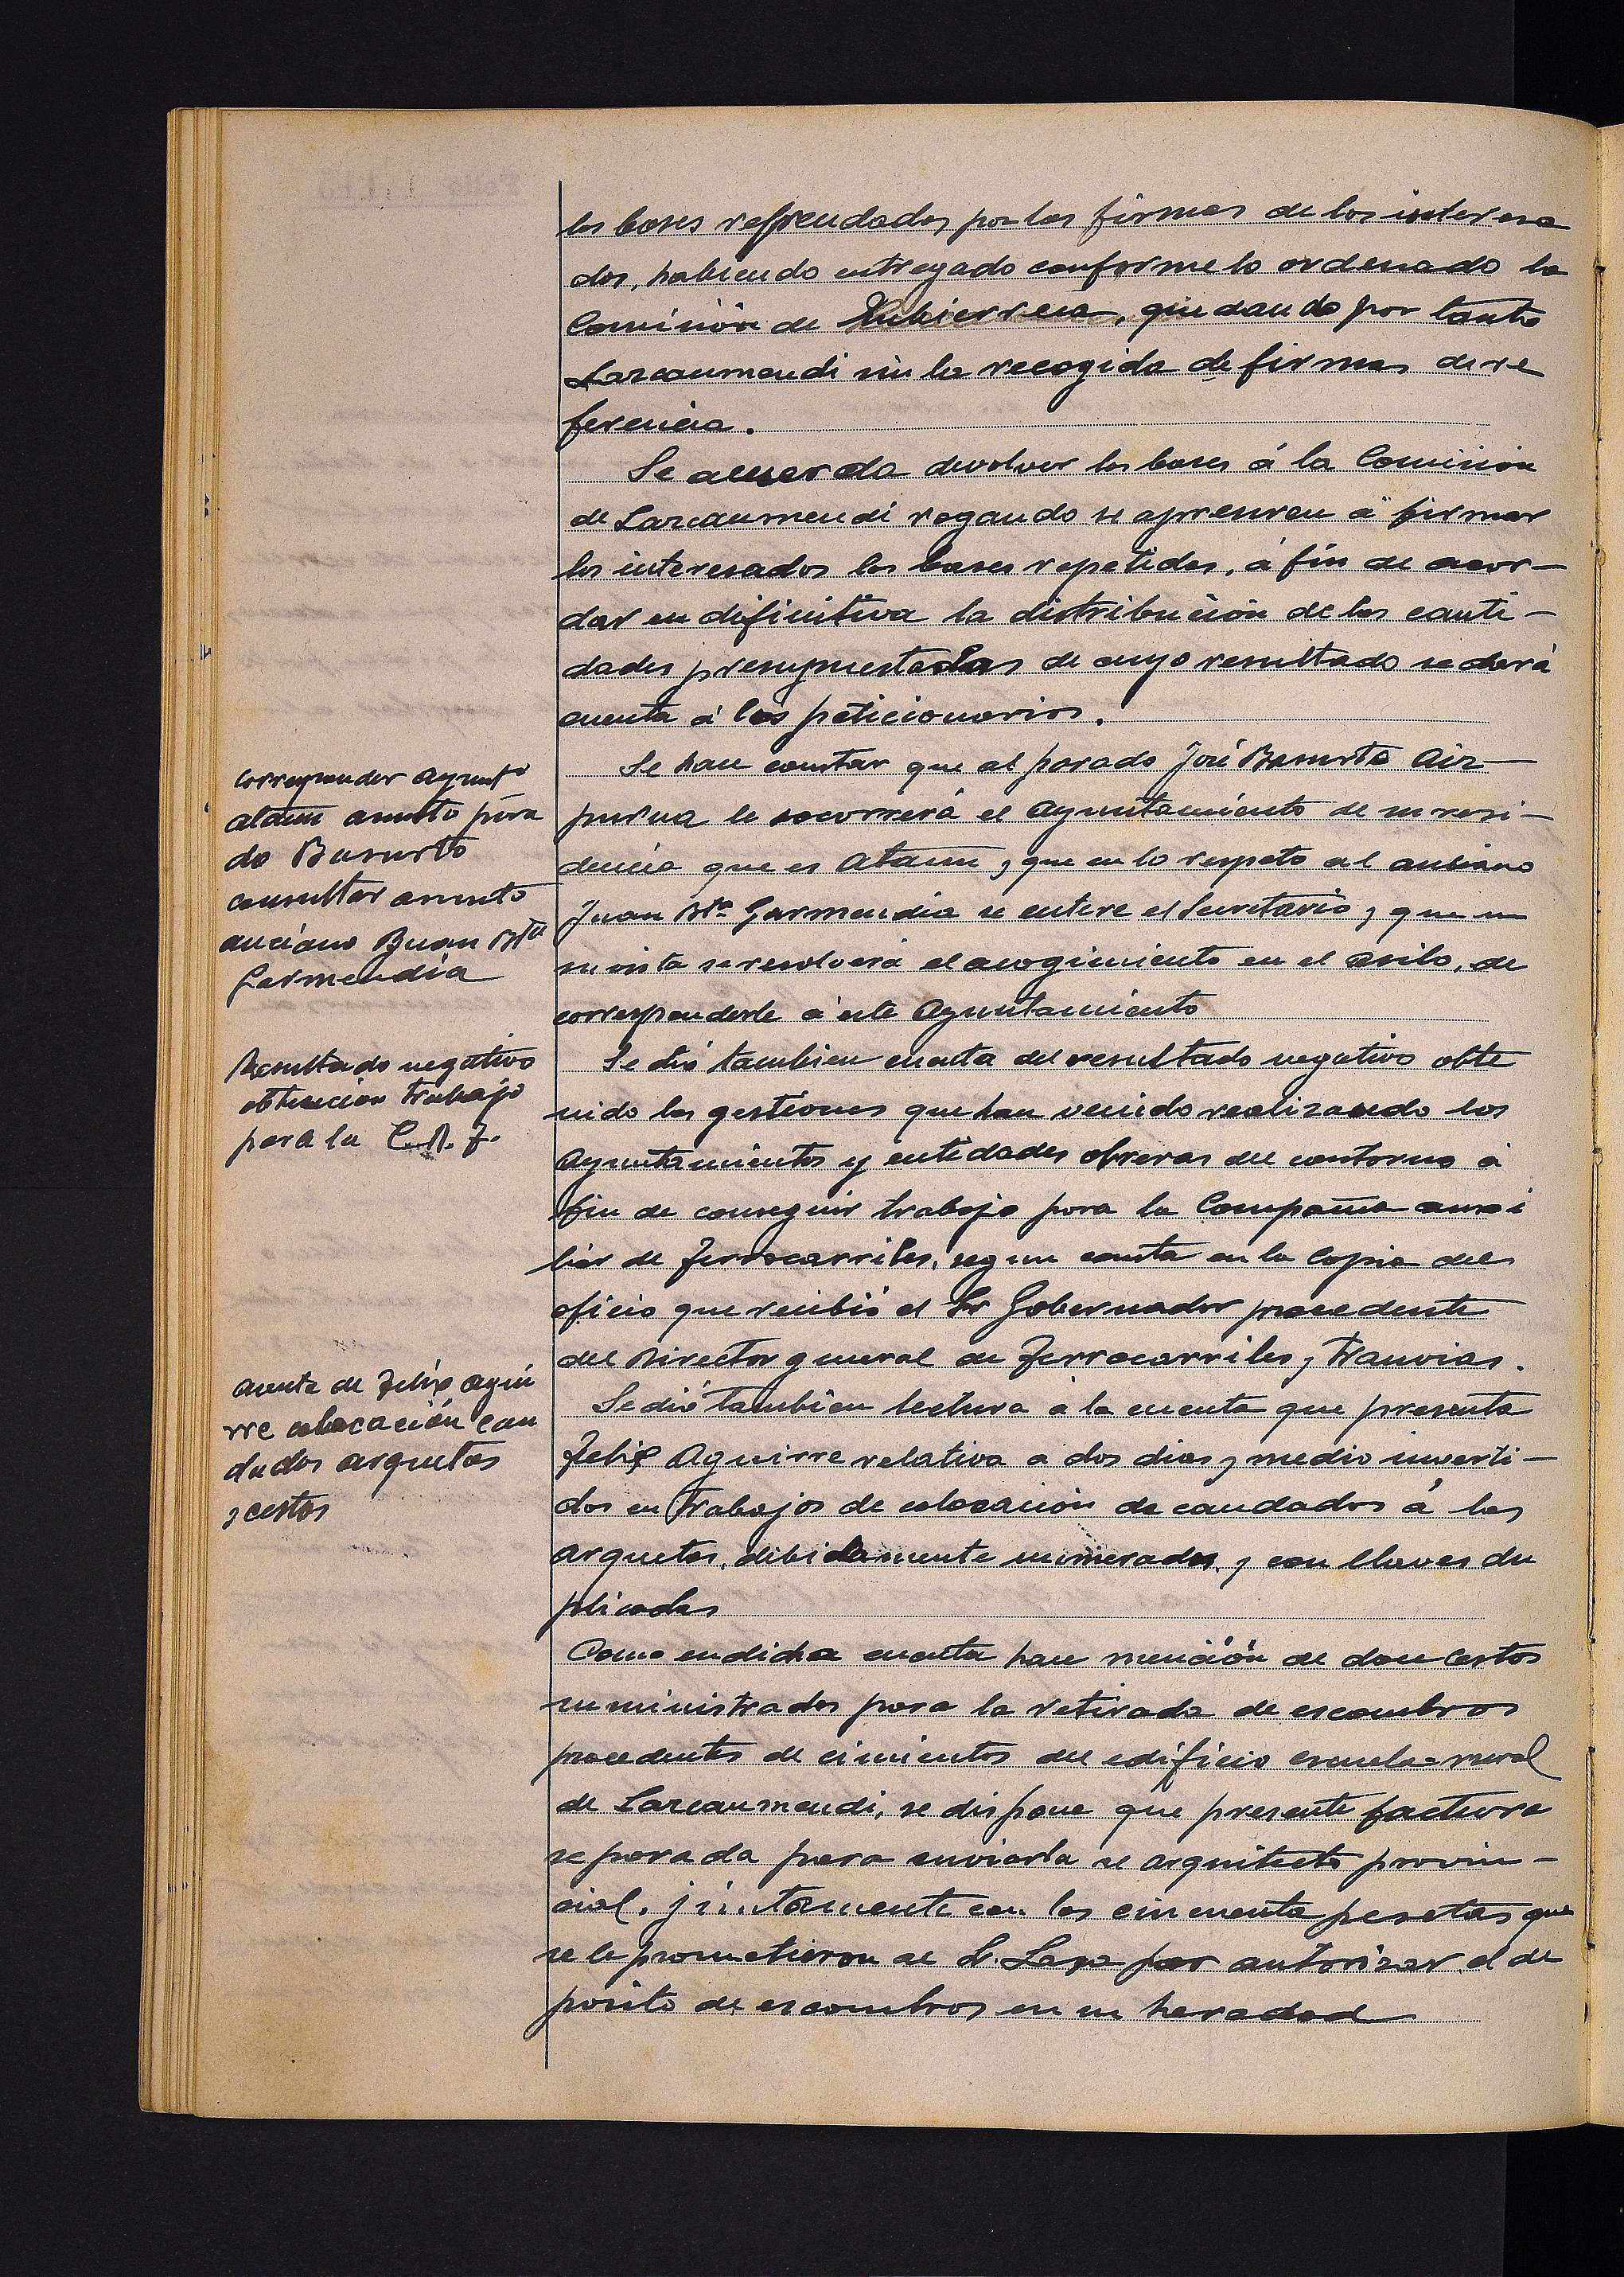 las bases refrendadas por las firmas de los interesa
dos, habiendo entregado conforme lo ordenado la
Comisión de Zubierreca, quedando por tanto
Larcaumendi sin la recogida de firmas de re
ferencia.
Se acuerda devolver las bases á la Comision
de Larcaumendi rogando se apresuren á firmar
los interesados las bases repetidas, á fin de acor-
dar en difinitiva la distribución de las canti-
dades presupuestadas de cuyo resultado se dará
cuenta á los peticionarios.
Corresponder Ayuntº
ataun asunto para
do Basurto
consultar asunto
anciano Juan Mª
Garmendia
Se hace constar que al parado José Basurto Aiz-
purua le socorrerá el Ayuntamiento de su resi-
dencia que es Ataun y que en lo respeto al anciano
Juan Mª Garmendia se entere el Secretario y que en
su vista se resolverá el acogimiento en el asilo, de
corresponderle á este Ayuntamiento
Resultado negativo
obtencion trabajo
para la C.A.F.
Se dió tambien cuenta del resultado negativo obte
nido las gestiones que han venido realizando los
Ayuntamientos y entidades obreras del contorno á
fin de conseguir trabajo para la Compañia auxi
liar de Ferrocarriles, segun consta en la copia del
oficio que recibió el Sr Gobernador procedente
del Director general de Ferrocarriles y Tranvias.
Cuenta de Felix Aguí
rre colocación can
dados arquetas
y cestos
Se dió tambien lectura á la cuenta que presenta
Felix Aguirre relativa a dos dias y medio inverti-
dos en trabajos de colocación de candados á las
arquetas, debidamente numeradas y con llaves du
plicadas
Como en dicha cuenta hace mención de doce cestos
suministrados para la retirada de escombros
procedentes de cimientos del edificio escuela rural
de Larcaumendi, se dispone que presente factura
separada para enviarla al arquitecto provin-
cial, juntamente con las cincuenta pesetas que
se le prometieron al Sr. Lasa por autorizar el de
posito de escombros en su heradad